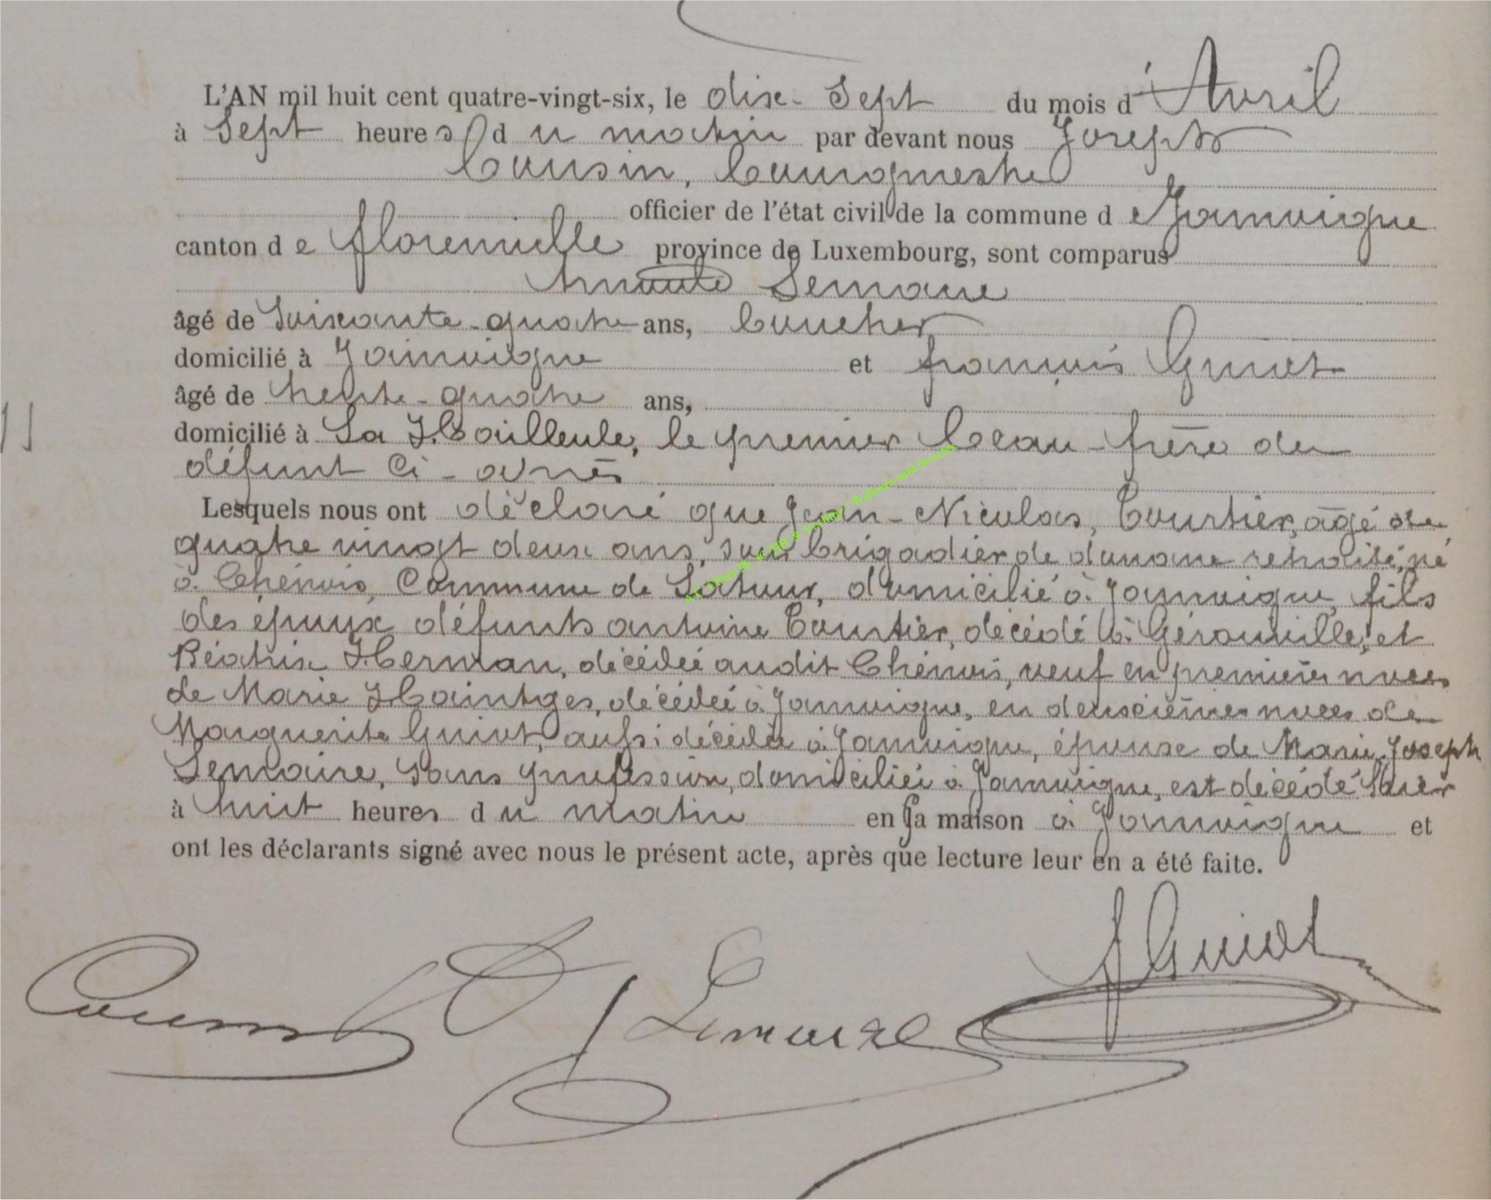 L'AN mil huit cent quatre-vingt-six, le dix-Sept du mois d'Avril
à Sept heures du matin par devant nous Joseph
Cousin, bourgmestre
officier de l'état civil de la commune de Jamoigne
canton de florenville province de Luxembourg, sont comparus
Lemaire
âgé de Soixante-quatre ans, boucher
domicilié à Jamoigne et françois Guiot
âgé de trente-quatre ans,
domicilié à La Hailleule, le premier beau-frère du
défunt ci-après
Lesquels nous ont déclaré que Jean-Nicolas, Courtier, âgé de
quatre vingt deux ans, sous brigadier de douane retraité, né
à Chênois, Commune de Latour, domicilié à Jamoigne, fils
des époux défunts antoine Courtier, décédé à Gérouville, et
Béatrix Herman, décédée audit Chênois, veuf en premières noces
de Marie Haintges, décédée à Jamoigne, en deuxièmes noces de
Marguerite Guiot, aussi décédée à Jamoigne, épouse de Marie-Joseph
Lemaire, sans profession, domiciliée à Jamoigne, est décédé hier
à huit heures du matin en sa maison à Jamoigne et
ont les déclarants signé avec nous le présent acte, après que lecture leur en a été faite.
f Guiot
Cousin Lemaire